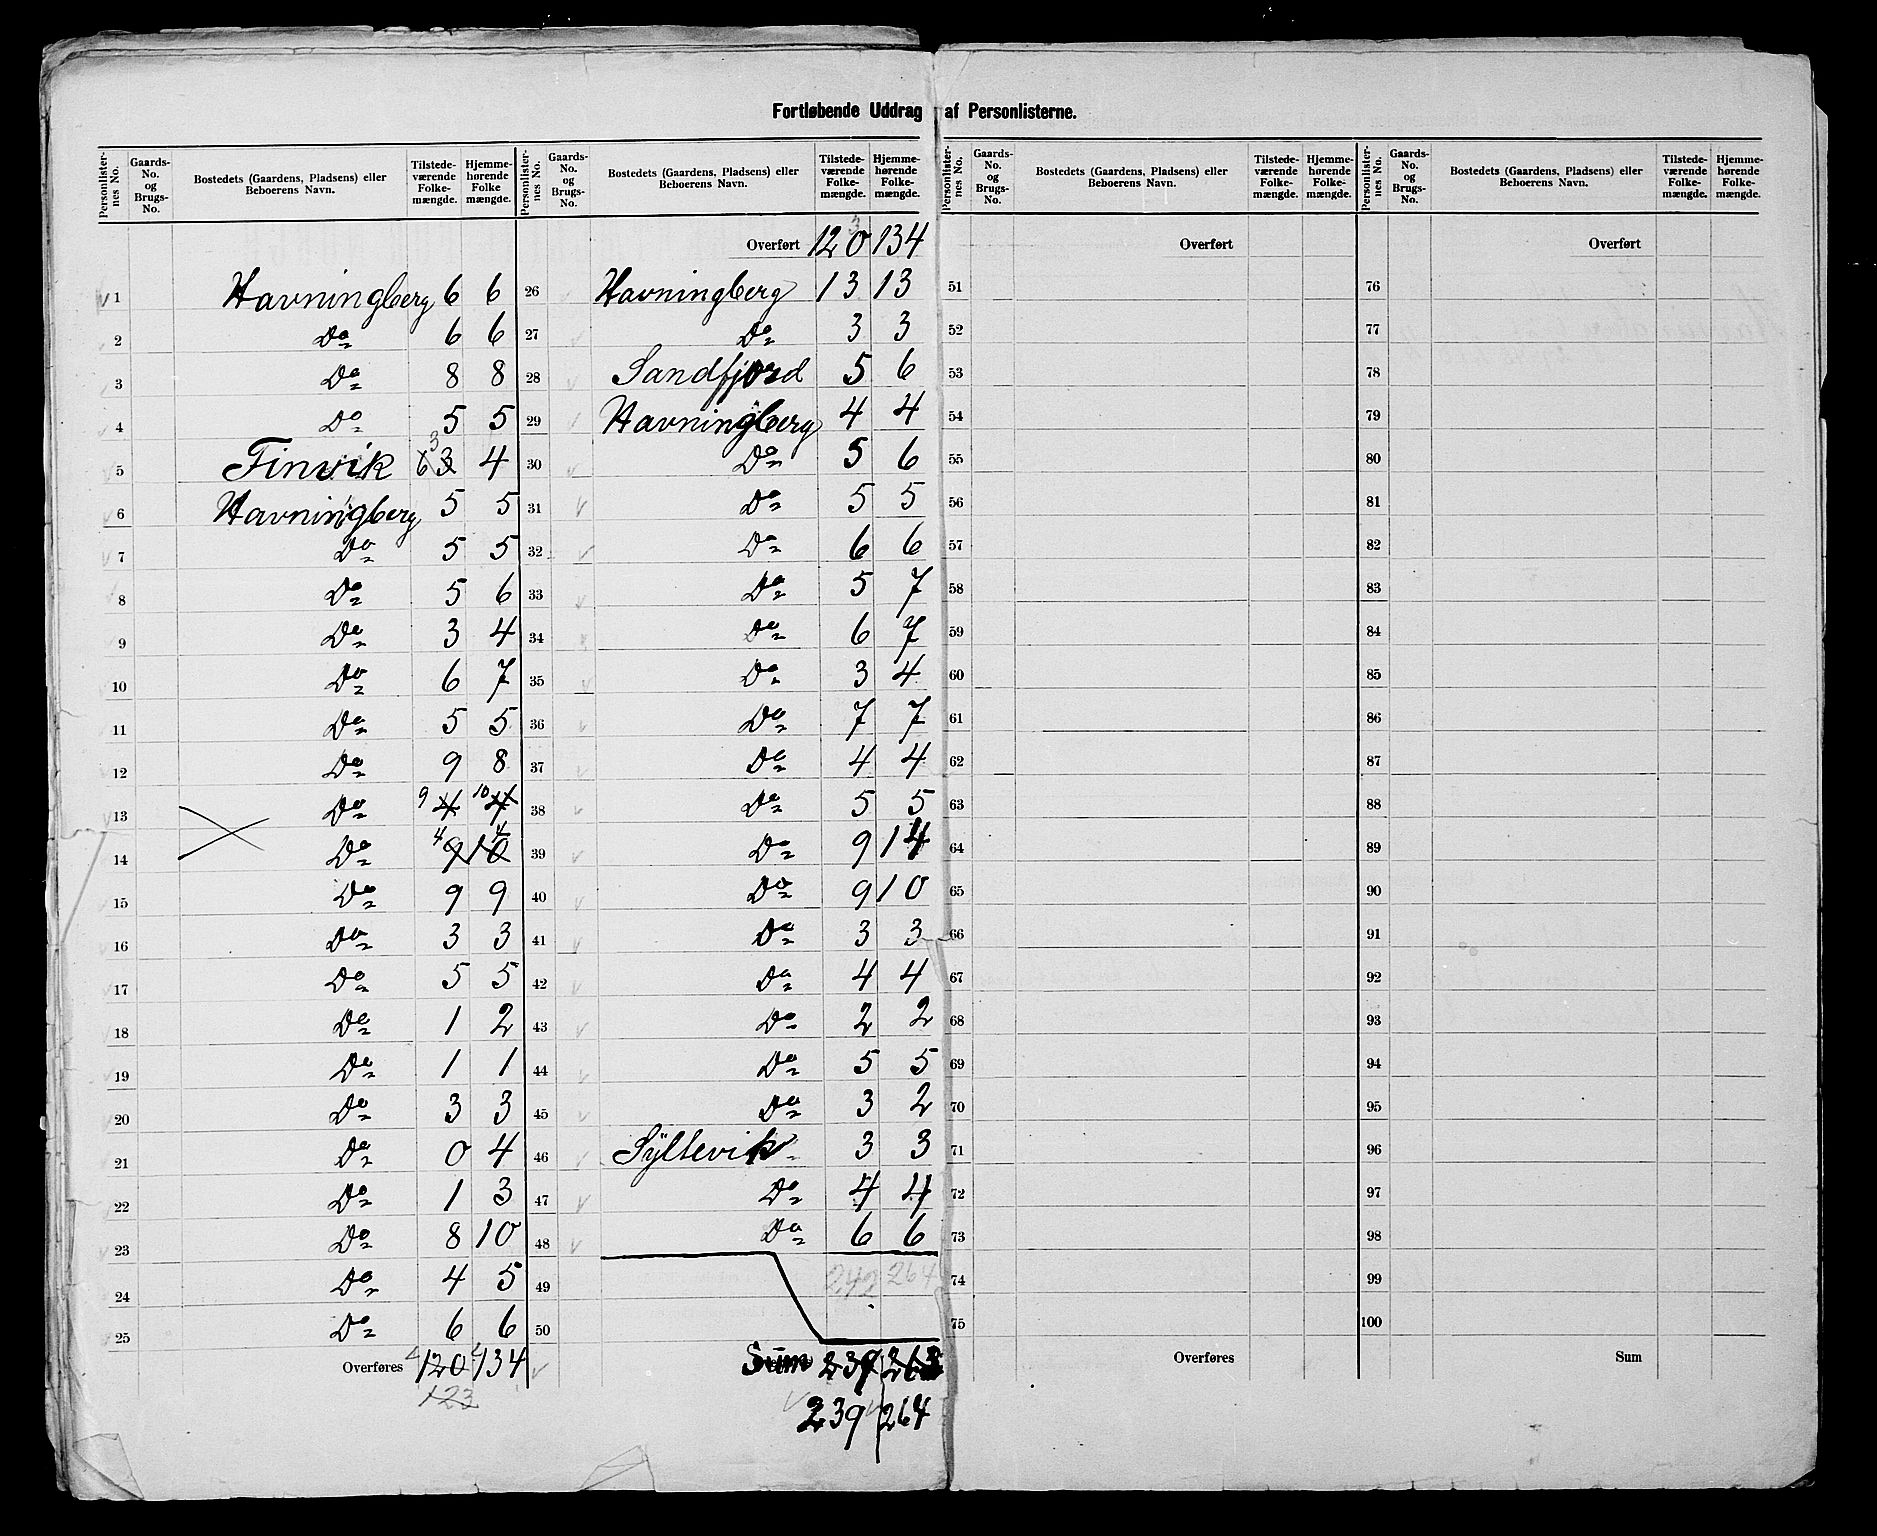 Fortløbende Uddrag af Personlisterne.
Personlisternes No. | Gaards-No. og Brugs-No. | Bostedets (Gaardens, Pladsens) eller Beboerens Navn. | Tilstedeværende Folkemængde. | Hjemmehørende Folke mængde.
1 Havningberg 6 6
2 Do 6 6
3 Do 8 8
4 Do 5 5
5 Finvik 3 4
6 Havningberg 5 5
7 Do 5 5
8 Do 5 6
9 Do 3 4
10 Do 6 7
11 Do 5 5
12 Do 9 8
13 Do 9 4 10 4
14 Do 4 9 4 10
15 Do 9 9
16 Do 3 3
17 Do 5 5
18 Do 1 2
19 Do 1 1
20 Do 3 3
21 Do 0 4
22 Do 1 3
23 Do 8 10
24 Do 4 5
25 Do 6 6
Overføres 120 134
123
Personlisternes No. | Gaards-No. og Brugs-No. | Bostedets (Gaardens, Pladsens) eller Beboerens Navn. | Tilstedeværende Folkemængde. | Hjemmehørende Folkemængde.
Overført 120 3 134
26 Havningberg 13 13
27 Do 3 3
28 Sandfjord 5 6
29 Havningberg 4 4
30 Do 5 6
31 Do 5 5
32 Do 6 6
33 Do 5 7
34 Do 6 7
35 Do 3 4
36 Do 7 7
37 Do 4 4
38 Do 5 5
39 Do 9 14
40 Do 9 10
41 Do 3 3
42 Do 4 4
43 Do 2 2
44 Do 5 5
45 Do 3 2
46 Syltevik 3 3
47 Do 4 4
48 Do 6 6
49 242 264
50
Sum 239 263
239 264
Personlisternes No. | Gaards-No. og Brugs-No. | Bostedets (Gaardens, Pladsens) eller Beboerens Navn. | Tilstedeværende Folkemængde. | Hjemmehørende Folkemængde.
Overført
51
52
53
54
55
56
57
58
59
60
61
62
63
64
65
66
67
68
69
70
71
72
73
74
75
Overføres
Personlisternes No. | Gaards-No. og Brugs-No. | Bostedets (Gaardens, Pladsens) eller Beboerens Navn. | Tilstedeværende Folkemængde. | Hjemmehørende Folkemængde.
Overført
76
77
78
79
80
81
82
83
84
85
86
87
88
89
90
91
92
93
94
95
96
97
98
99
100
Sum